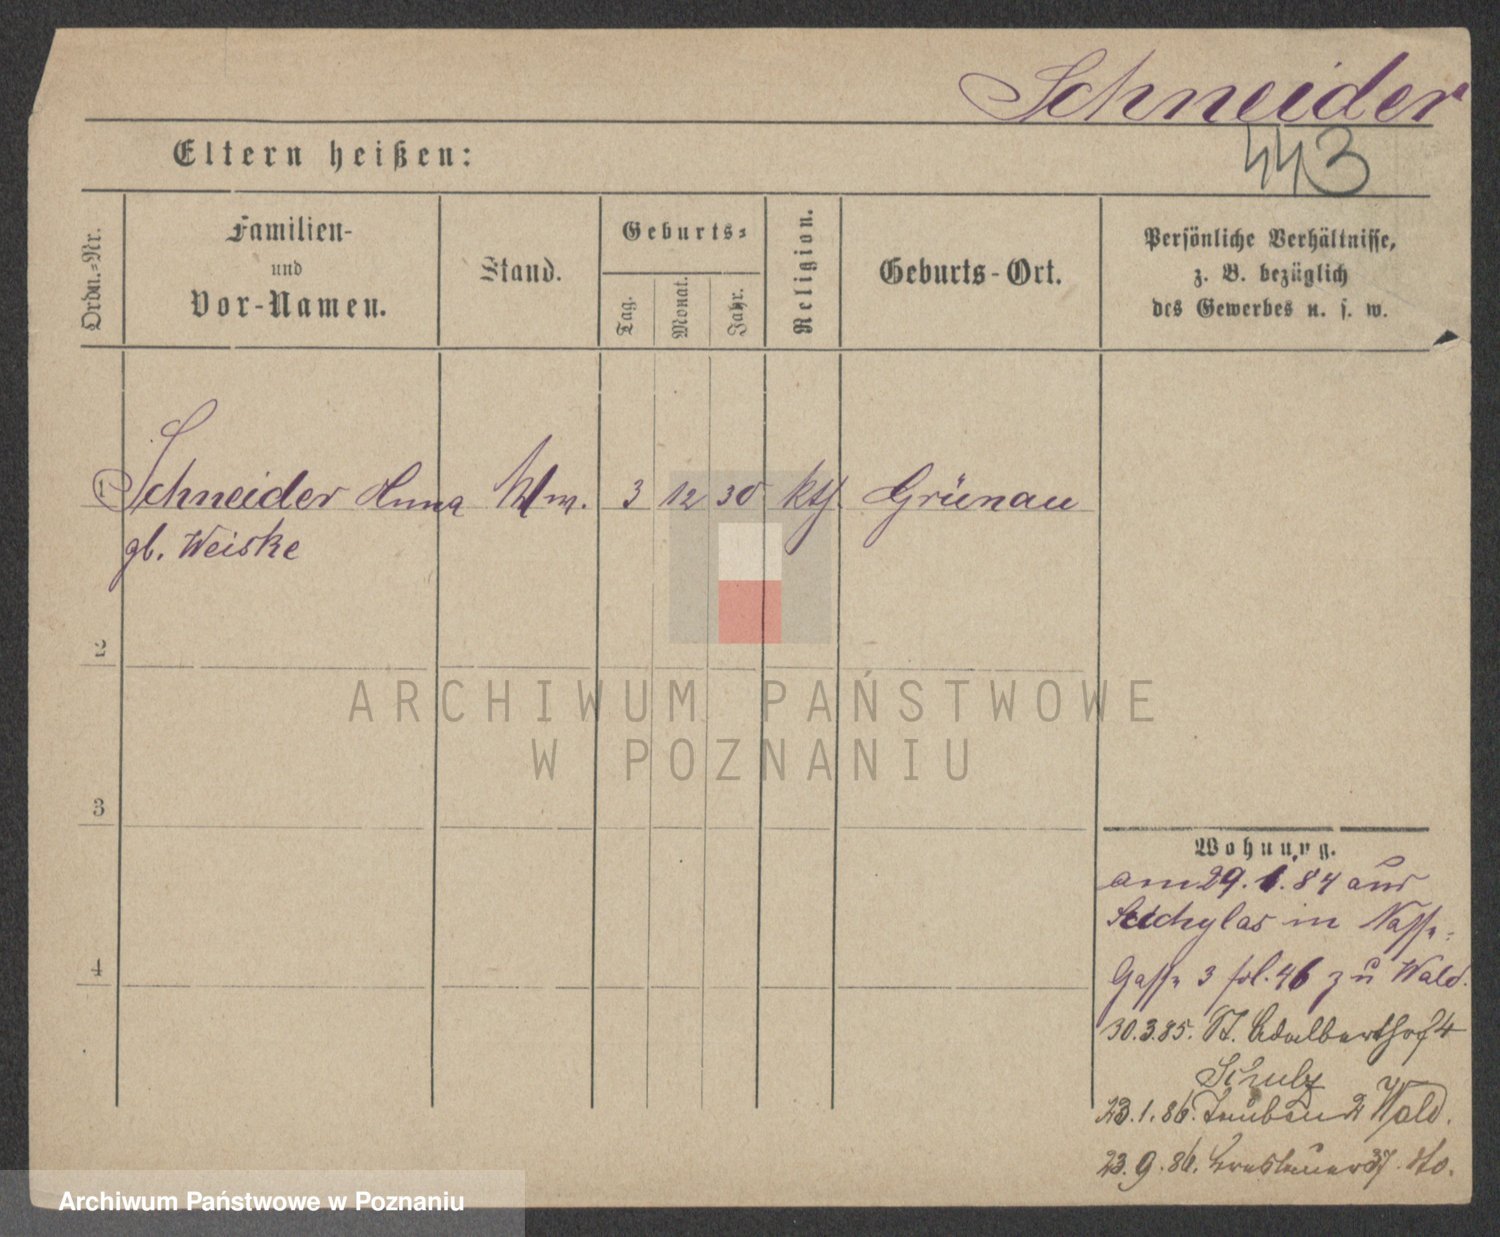 Schneider
Eltern heißen:
443
Ordn.=Nr.
Familien-
und
Vor-Namen.
Stand.
Geburts=
Tag.
Monat.
Jahr.
Religion.
Geburts-Ort.
Persönliche Verhältnisse,
z. B. bezüglich
des Gewerbes u. s. w.
1 Schneider Anna Ww. 3 12 30 kth. Grünau
gb. Weiske
2
ARCHIWUM PAŃSTWOWE
W POZNANIU
3
Wohnung.
am 29. 1. 84 aus
in Nasse=
4
Gasse 3 fol. 46 zu Wald.
30.3.85. St. Adalberthof 4
Schulz
23.1.86. Wald.
23.9.86. Breslauer 37. do.
Archiwum Państwowe w Poznaniu